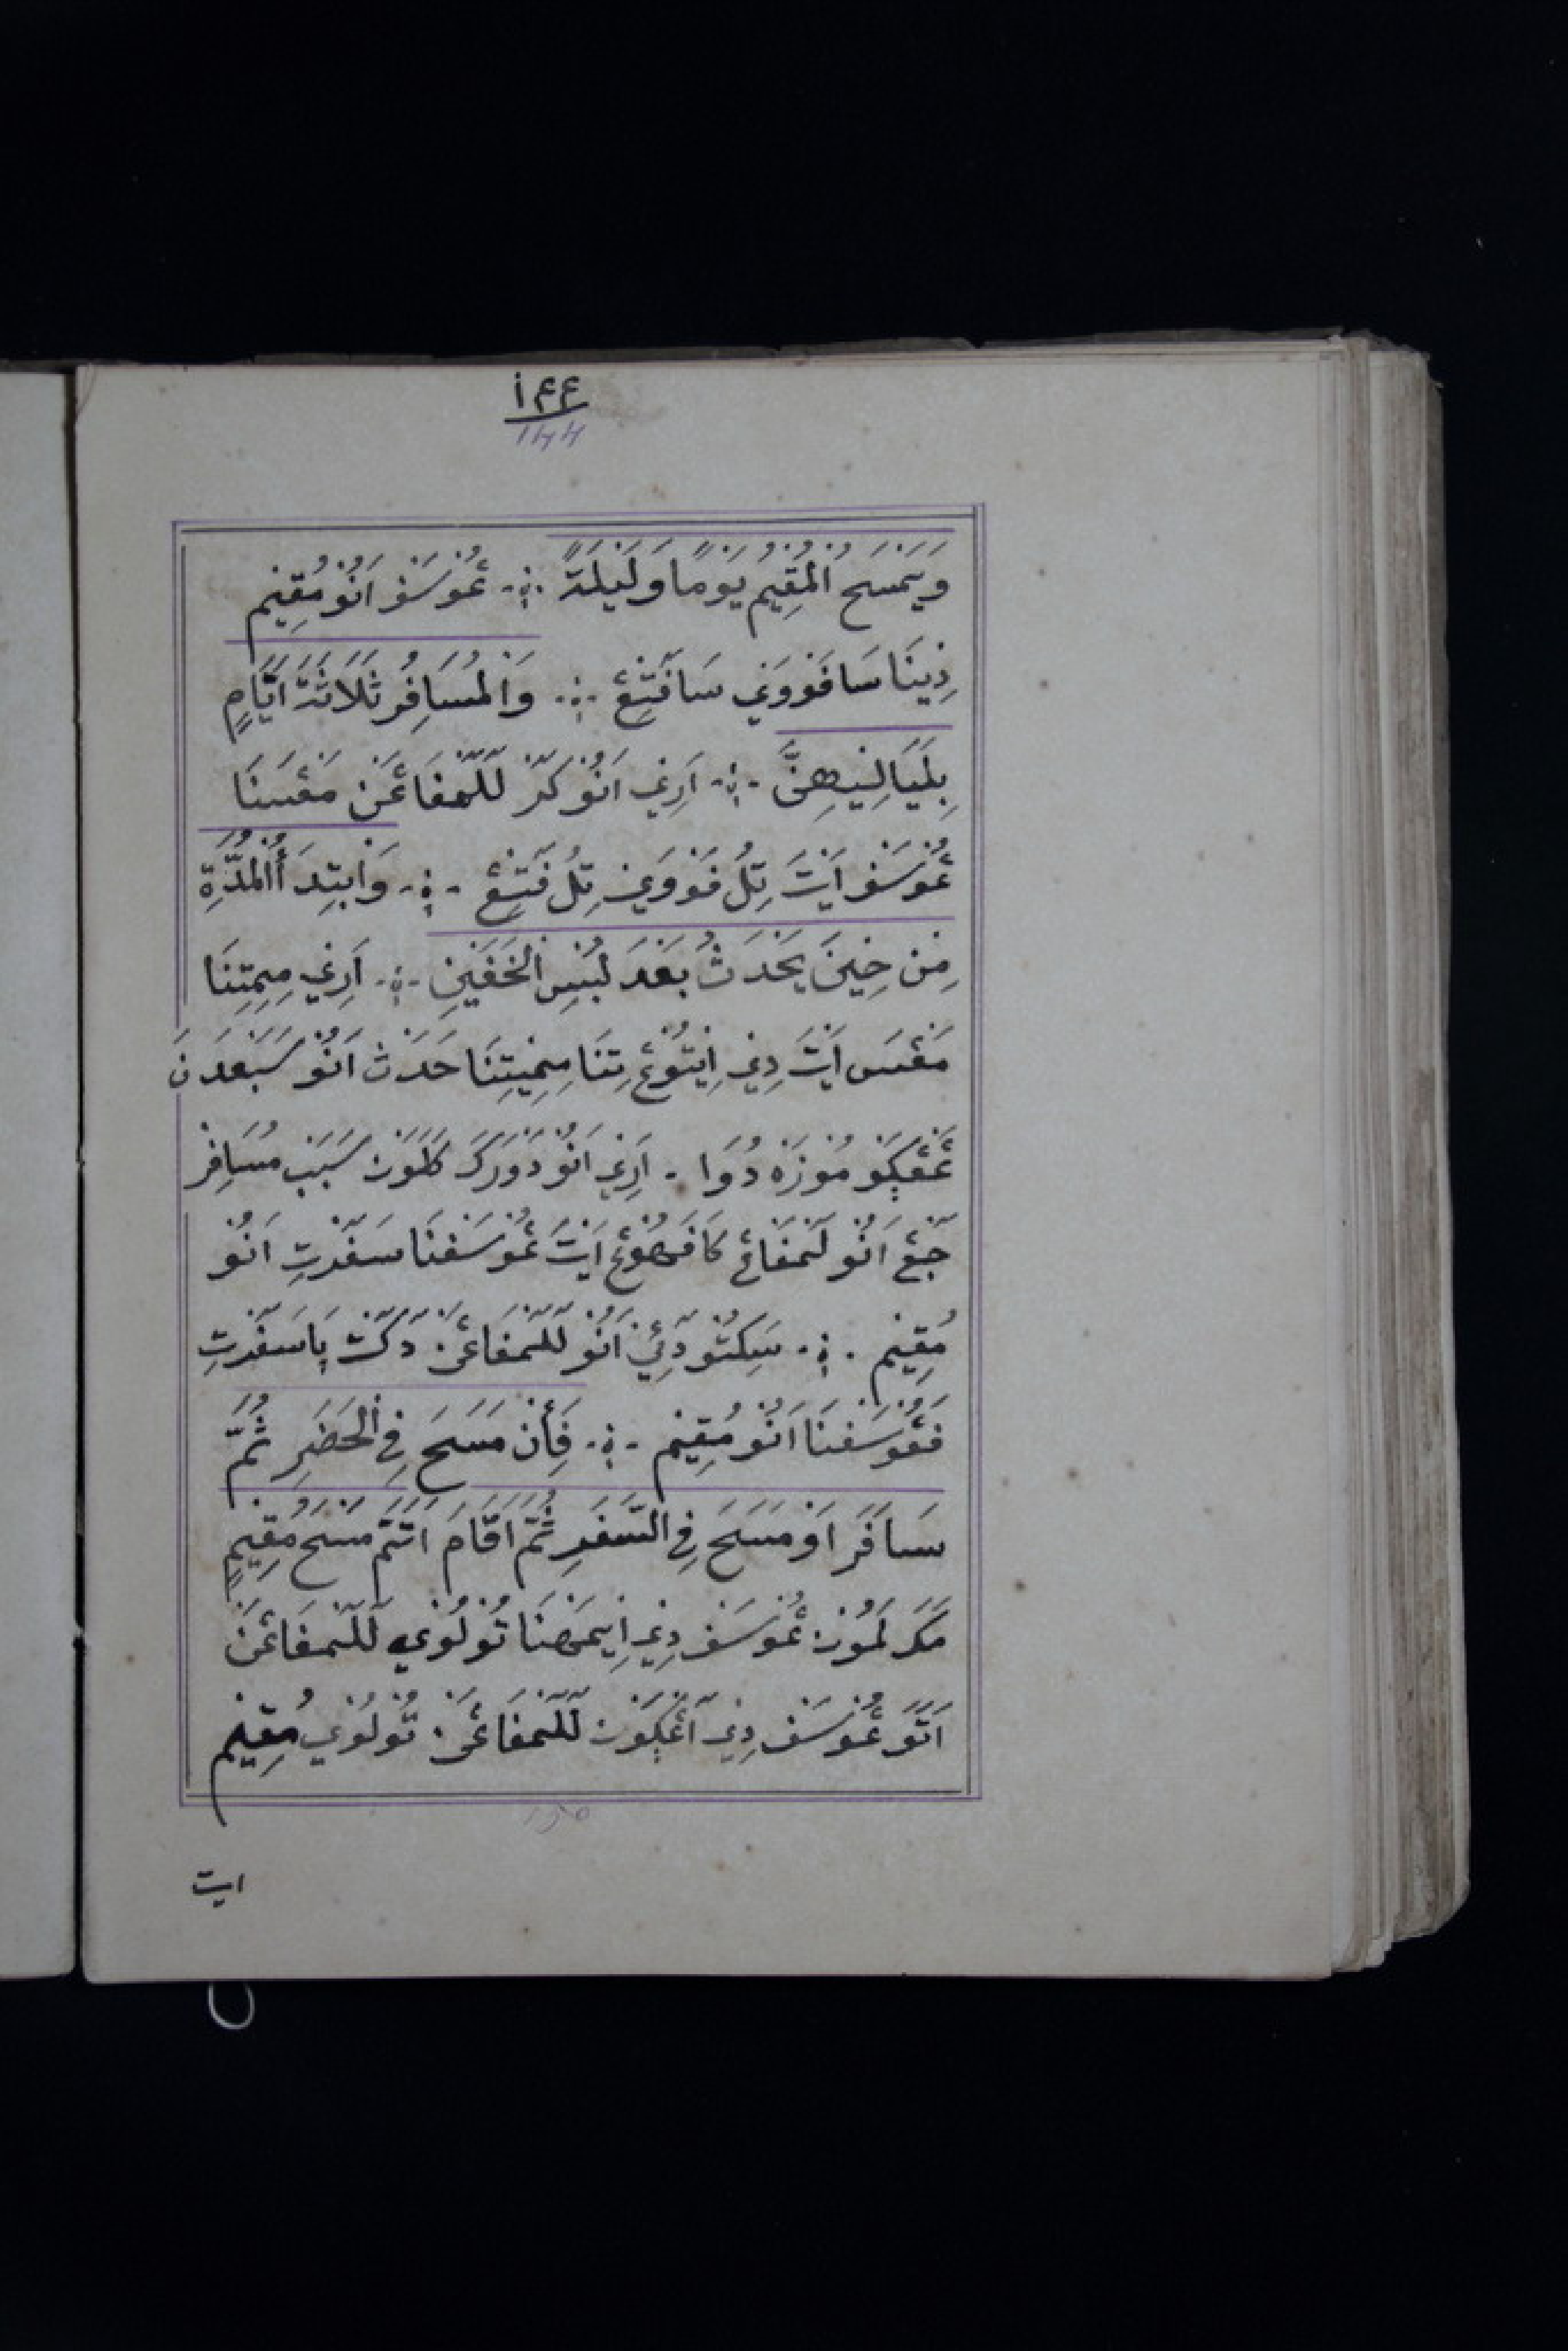 ١٤٤
144
وَيَمْسَحُ الْمُقِيْمُ يَوْمًا وَلَيْلَةً ؞ غُوْسَفْ اَنُوْ مُقِيْم
دِيْنَا سَافَوْوَيْ سَافَتِڠْ ؞ وَالْمُسَافِرُ ثَلَاثَةَ اَيَّامٍ
بِلَيَالِيْهِنَّ ؞ اَرِغِي اَنُوْ كَرَّ لَلَّمْفَاغَنْ مَڠْسَنَا
غُوْسَفْ اَيْتَ تِلُ فَوْوَيْ تِلُ فَتِڠْ ؞ وَابْتِدَأُ الْمُدَّةِ
مِنْ حِيْنَ يَحْدَثُ بَعْدَ لُبْسِ الْخَفَيْنِ ؞ اَرِغِي مِمِتِنَا
مَڠْسَ اَيْتَ دِيْ اِيْتُوْڠْ تِنَا مِمِيْتِنَا حَدَثْ اَنُوْ سَبَعْدَنَ
مُوْزَهْ دُوَا . اَرِغِي اَنُوْ دَوْرَكَ كَلَوَنْ سَبَبْ مُسَافِرْ
اَنُوْ لَمْفَاغْ كَافَهُوْڠْ اَيْتَ غُوْسَفْنَا سَفَرْتِ اَنُوْ
مُقِيْم . ؞ سَكَتُوْ دَئِيْ اَنُوْ لَلَّمْفَاغَنْ دَكَتْ ڽَا سَفَرْتِ
فَڠُوْسَفْنَا اَنُوْ مُقِيْم ؞ فَأِنْ مَسَحَ فِي الْحَضَرِ ثُمَّ
سَافَرَ اَوْ مَسَحَ فِي السَّفَرِ ثُمَّ اَقَامَ اَتَمَّ مَسْحَ مُقِيْمٍ
مَكَ لَمُوْنْ غُوْسَفْ دِيْ اِيْمَهْنَا تُوْلُوْيْ لَلَّمْفَاغَنْ
اَتَوَ غُوْسَفْ دِيْ لَلَّمْفَاغَنْ تُوْلُوْيْ مُقِيْم
ايت